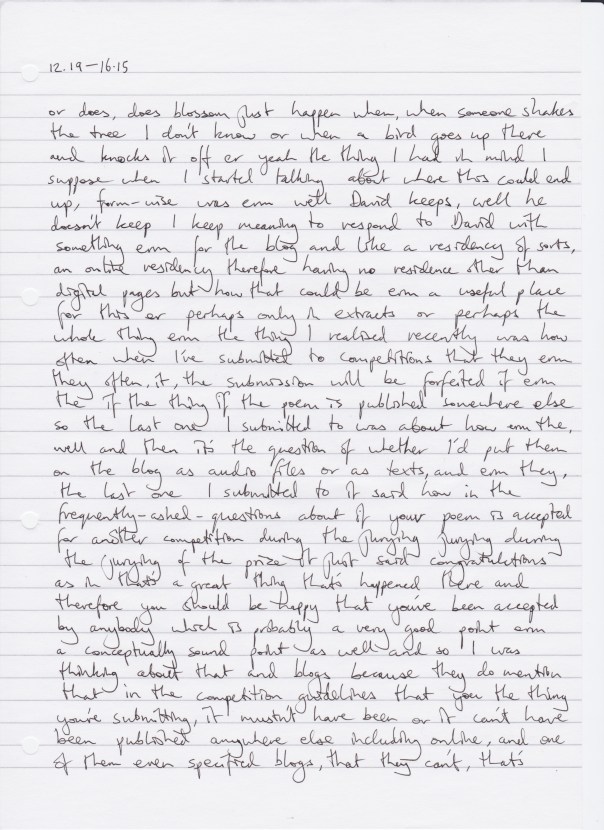 12.19–16.15
or does, does blossom just happen when, when someone shakes
the tree I don't know or when a bird goes up there
and knocks it off er yeah the thing I had in mind I
suppose when I started talking about where this could end
up, form-wise was erm well David keeps, well he
doesn't keep I keep meaning to respond to David with
something erm for the blog and like a residency of sorts,
an online residency therefore having no residence other than
digital pages but how that could be erm a useful place
for this er perhaps only in extracts or perhaps the
whole thing erm the thing I realised recently was how
often when I've submitted to competitions that they erm
they often, it, the submission will be forfeited if erm
the if the thing if the poem is published somewhere else
so the last one I submitted to was about how erm the,
well and then it's the question of whether I'd put them
on the blog as audio files or as texts, and erm they,
the last one I submitted to it said how in the
frequently-ashed-questions about if your poem is accepted
for another competition during the jurying jurying during
the jurying of the prize it just said congratulations
as in that's a great thing that's happened there and
therefore you should be happy that you've been accepted
by anybody which is probably a very good point erm
a conceptually sound point as well and so I was
thinking about that and blogs because they do mention
that in the competition guidelines that you the thing
you're submitting, it mustn't have been or it can't have
been published anywhere else including online, and one
of them even specified blogs, that they can't, that's